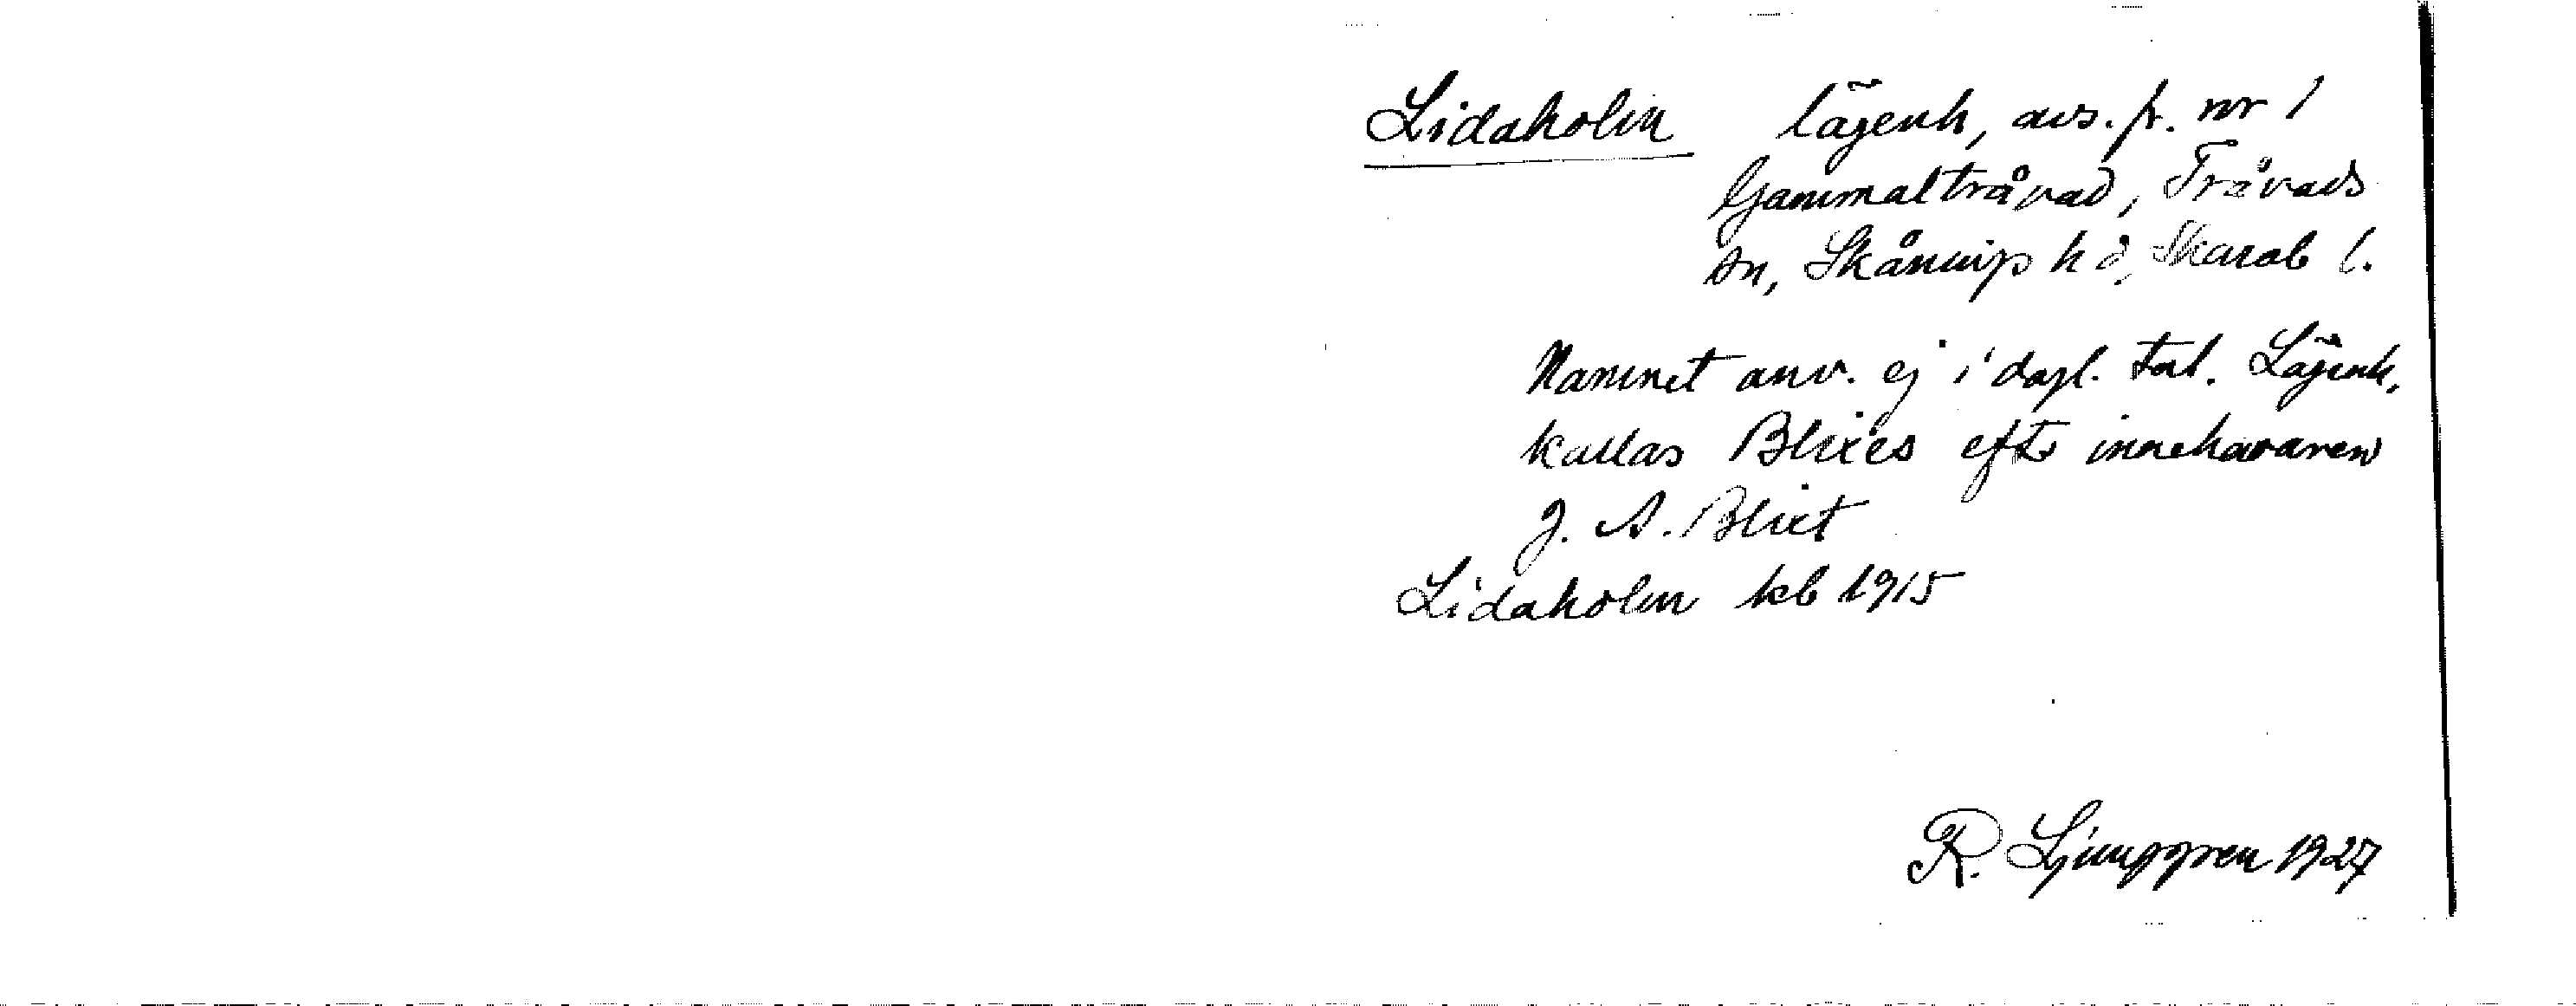 Lidaholm lägenh, avs. fr. nr 1
Gammaltråvad, Tråvads
sn, Skånings hd, Skarab l.
Namnet anv. ej i dagl. tal. Lägenh.
kallas Blixes efter innehavaren
J. A. Blixt
Lidaholm kb 1915
R. Ljunggren 1927